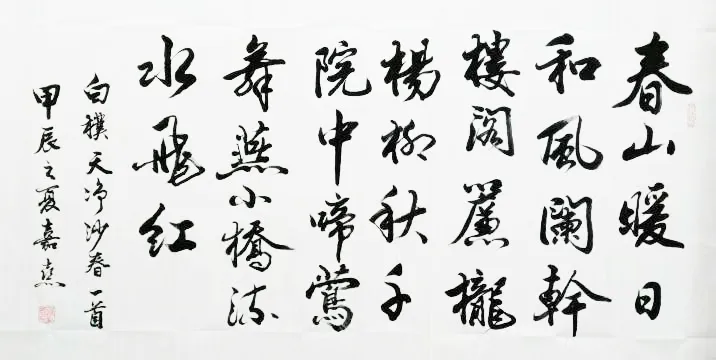 春山暖日
和風闌幹
樓閣簾櫳
楊柳秋千
院中啼鶯
舞燕小橋流
水飛紅
白樸天净沙春一首
甲辰之夏嘉熹